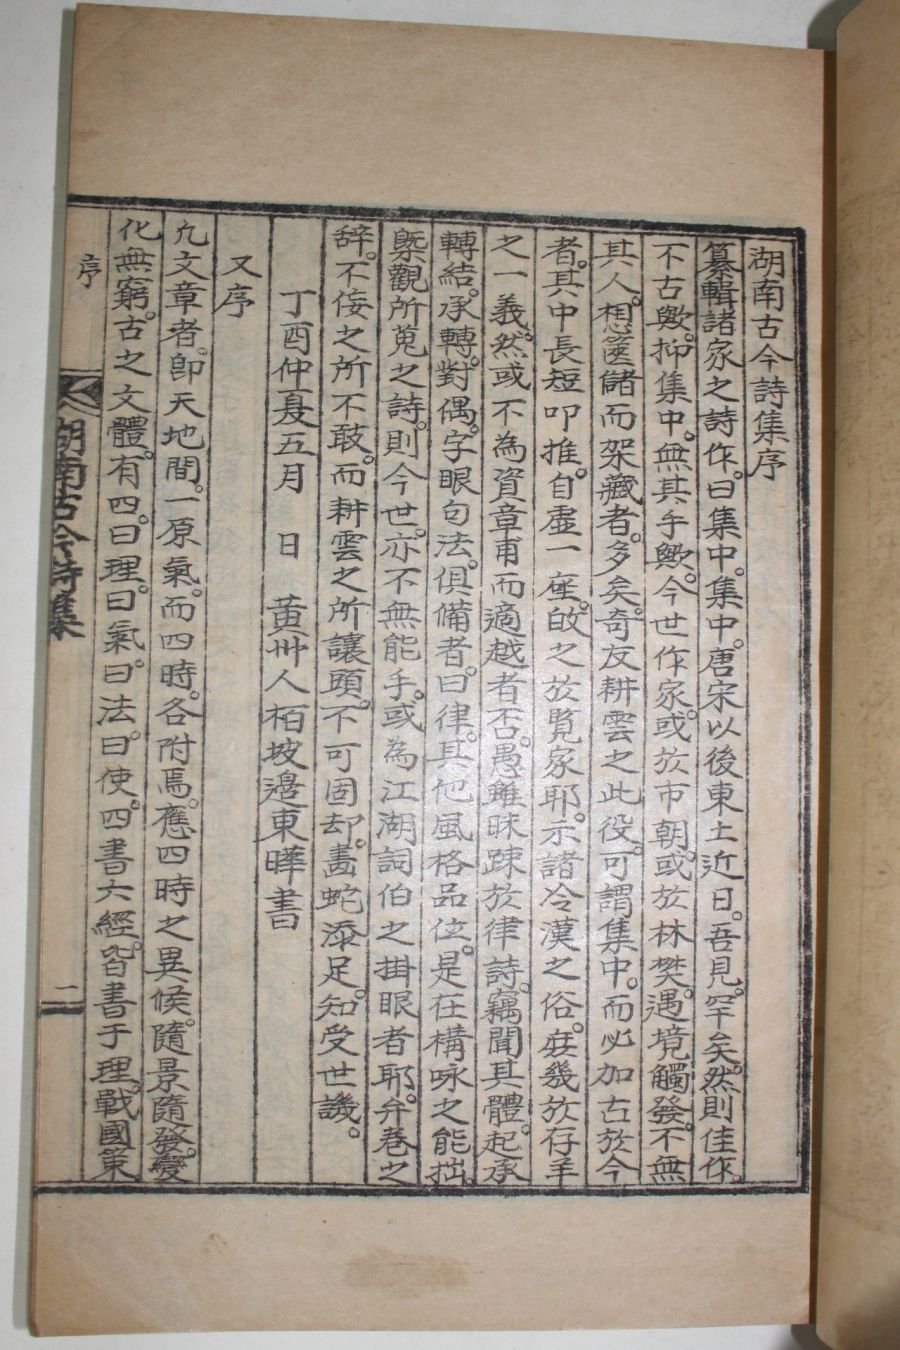 湖南古今詩集序
纂輯諸家之詩作。曰集中。集中。唐宋以後東土近日。吾見。罕矣。然則佳作。
不古歟。抑集中。無其手歟。今世作家。或於市朝。或於林樊。遇境觸發。不無
其人。想篋儲而架藏者。多矣。奇友耕雲之此役。可謂集中。而必加古於今
者。其中長短叩推。自虛一座。故之於覽家耶。示諸冷漢之俗。庶幾於存羊
之一義。然或不為資章甫而適越者否。愚雖昧疎於律詩。竊聞其體。起承
轉結。承轉。對偶。字眼句法。俱備者。曰律。其他風格品位。是在構咏之能拙。
槩觀所蒐之詩。則今世。亦不無能手。或為江湖詞伯之掛眼者耶。弁卷之
辭。不侫之所不敢。而耕雲之所讓頭。不可固却。畵蛇添足。知受世譏。
丁酉仲夏五月 日 黃州人栢坡邊東曄書
又序
凡文章者。卽天地間。一原氣。而四時。各附焉。應四時之異候。隨景隨發。變
化無窮。古之文體。有四。曰理。曰氣。曰法。曰使。四書六經。皆書于理。戰國策
序
湖南古今詩集
一